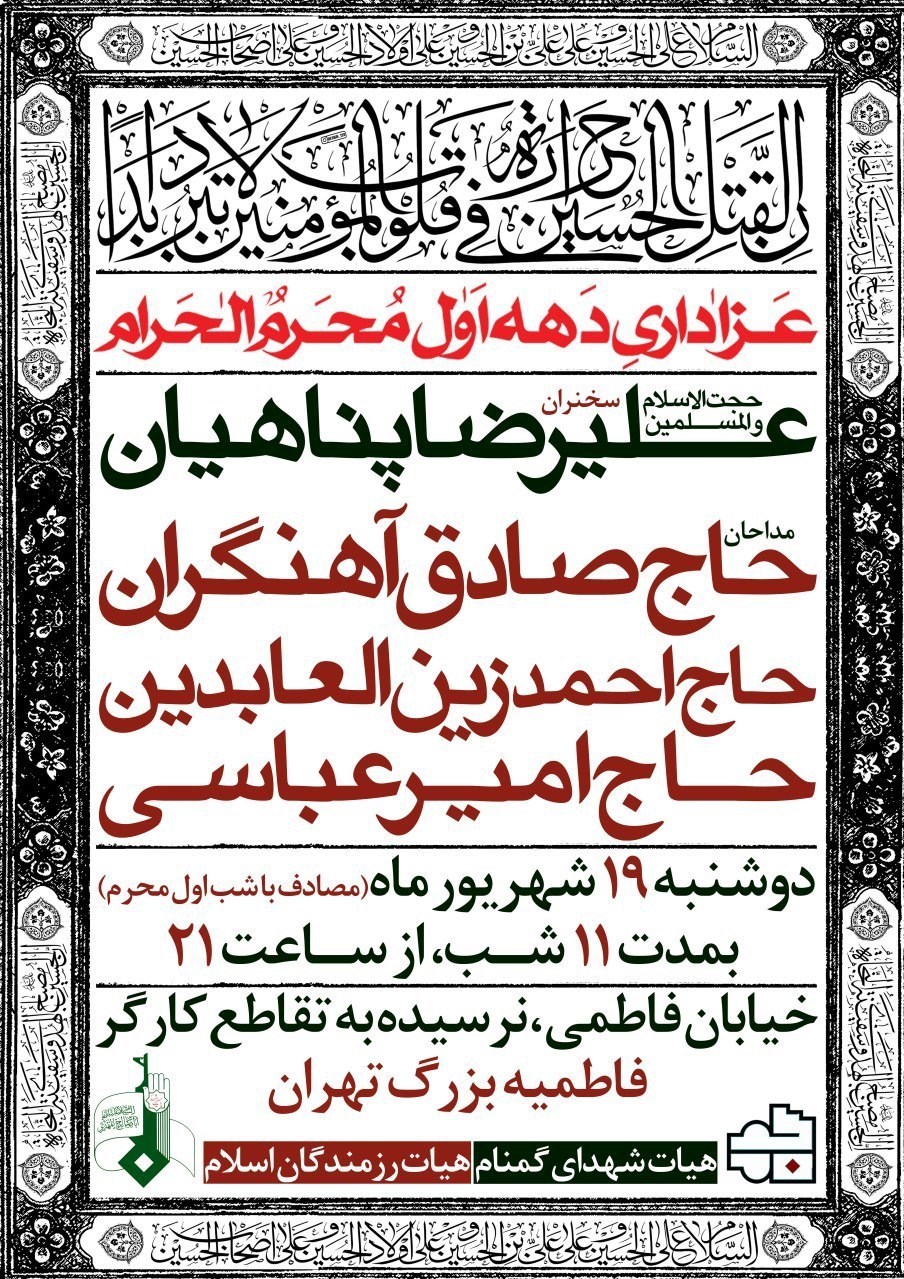 السلام علی الحسین و علی علی بن الحسین و علی اولاد الحسین و علی اصحاب الحسین
ان لقتل الحسین حرارة فی قلوب المؤمنین لا تبرد ابدا
عزاداریِ دهه اول مُحَرمُ الحَرام
حجت الاسلام والمسلمین
سخنران
علیرضا پناهیان
مداحان
حاج صادق آهنگران
حاج احمد زین العابدین
حاج امیر عباسی
دوشنبه ۱۹ شهریور ماه (مصادف با شب اول محرم)
بمدت ۱۱ شب، از ساعت ۲۱
خیابان فاطمی، نرسیده به تقاطع کارگر
فاطمیه بزرگ تهران
هیات شهدای گمنام هیات رزمندگان اسلام
السلام علی الحسین و علی علی بن الحسین و علی اولاد الحسین و علی اصحاب الحسین